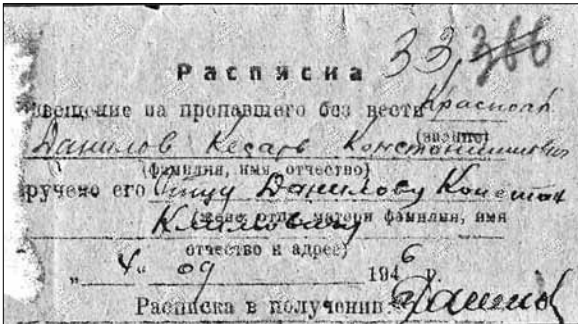 33, 366
Расписка
звещение на пропавшего без вести Красноа
(звание)
Данилов Кесарь Константинович
(фамилия, имя, отчество)
вручено его Отцу Данилову Констан
(жене, отцу, матери фамилия, имя
Климовичу
отчество и адрес)
„ 4 “ 09 1946 г.
Расписка в получении: